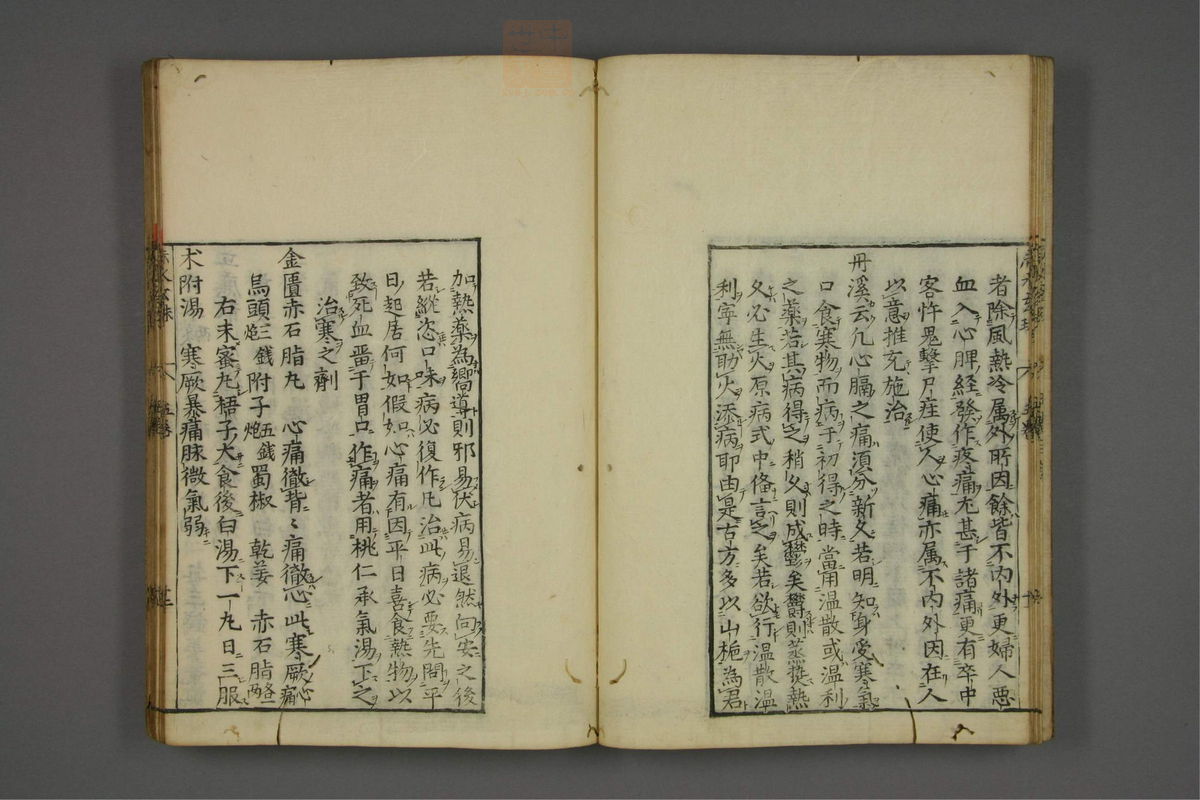 者除風熱冷属外所因餘皆不内外更婦人惡
血入心脾經發作疼痛尤甚于諸痛更有卒中
客忤鬼擊尸疰使人心痛亦属不内外因在人
以意推充施治
丹溪云凡心膈之痛須分新久若明知身受寒氣
口食寒物而病于初得之時當用温散或温利
之藥若其病得之稍久則成欝矣欝則蒸熱
久必生火原病式中俻言之矣若欲行温散温
利寧無助火添病耶由是古方多以山梔為君
加熱藥為嚮導則邪易伏病易退然向安之後
若縱恣口味病必復作凢治此病必要先問平
日起居何如假如心痛有因平日喜食熱物以
致死血畱于胃口作痛者用桃仁承氣湯下之
治寒之劑
金匱赤石脂丸 心痛徹背〻痛徹心此寒厥心痛
烏頭炮三錢 附子炮五錢 蜀椒 乾姜 赤石脂各一両
右末蜜丸梧子大食後白湯下一丸日三服
术附湯 寒厥暴痛脉微氣弱